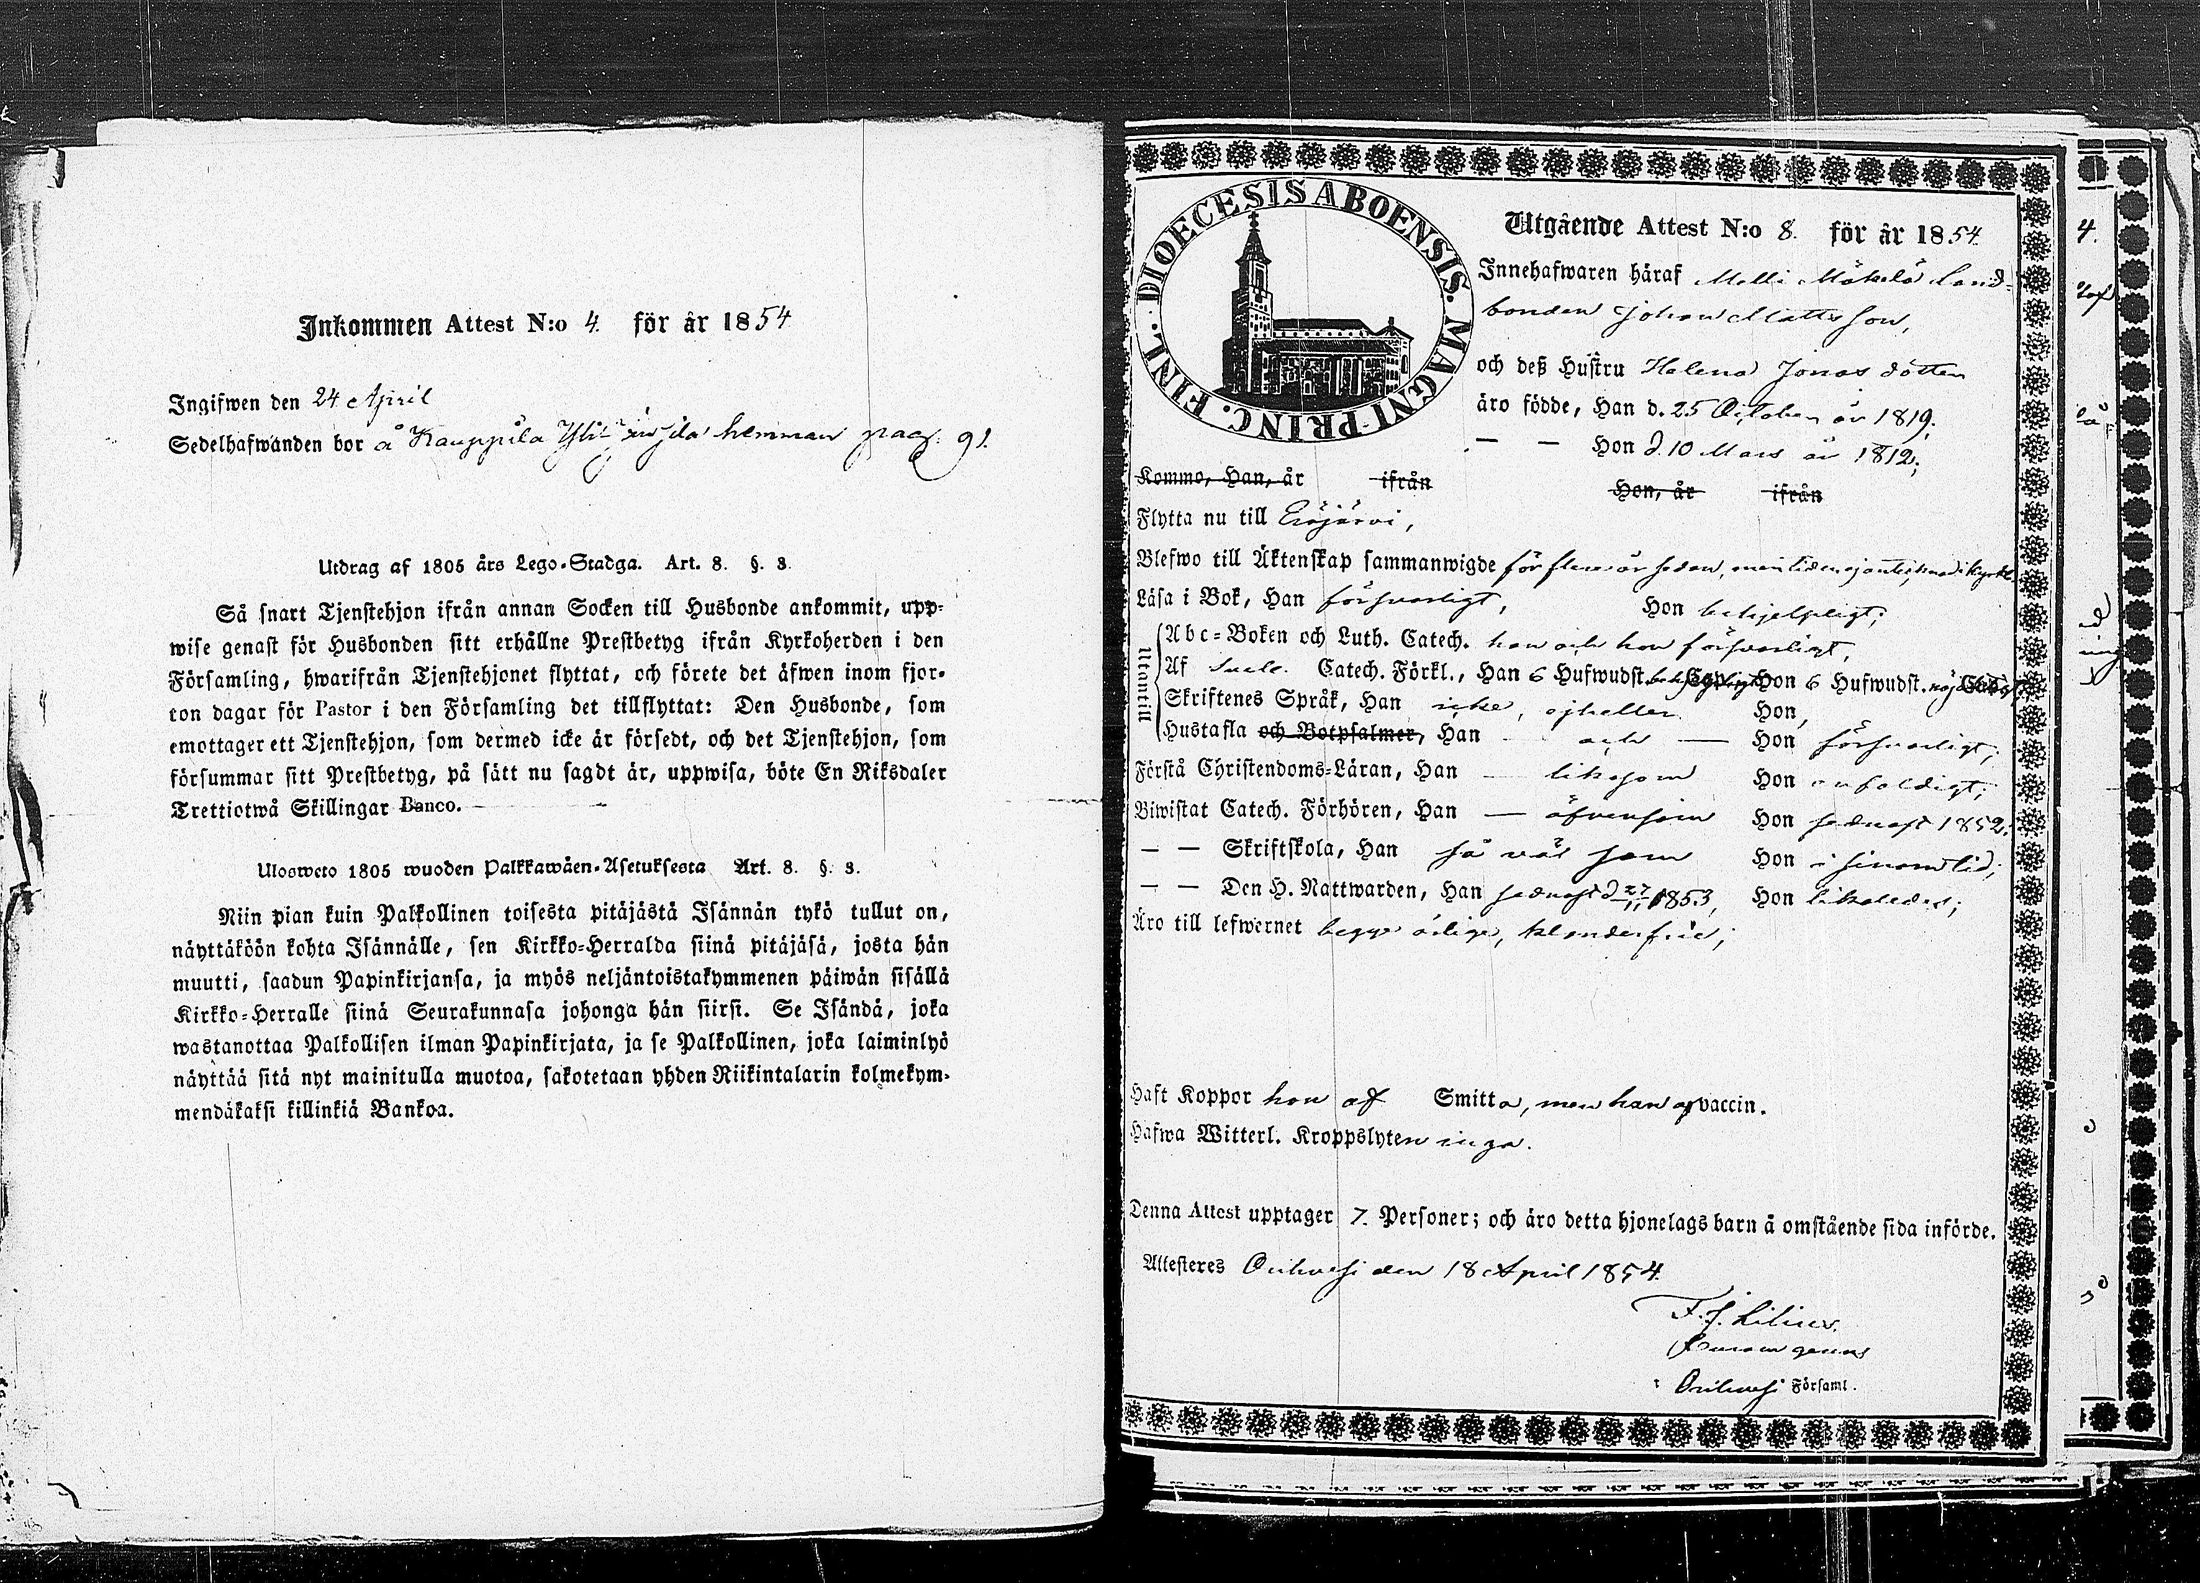 Inkommen Attest N:o 4 för år 1854
Ingifwen den 24 April
Sedelhafwanden bor å Kauppila Yli hemman pag. 91.
Utdrag af 1805 års Lego-Stadga. Art. 8. §. 3.
Så snart Tjenstehjon ifrån annan Socken till Husbonde ankommit, upp-
wise genast för Husbonden sitt erhållne Prestbetyg ifrån Kyrkoherden i den
Församling, hwarifrån Tjenstehjonet flyttat, och förete det äfwen inom fjor-
ton dagar för Pastor i den Församling det tillflyttat: Den Husbonde, som
emottager ett Tjenstehjon, som dermed icke är försedt, och det Tjenstehjon, som
försummar sitt Prestbetyg, på sätt nu sagdt är, uppwisa, böte En Riksdaler
Trettiotwå Skillingar Banco.
Ulosweto 1805 wuoden Palkkawäen-Asetuksesta Art. 8. §. 3.
Niin pian kuin Palkollinen toisesta pitäjästä Isännän tykö tullut on,
näyttäköön kohta Isännälle, sen Kirkko-Herralda siinä pitäjäsä, josta hän
muutti, saadun Papinkirjansa, ja myös neljäntoistakymmenen päiwän sisällä
Kirkko-Herralle siinä Seurakunnasa johonga hän siirsi. Se Isändä, joka
wastanottaa Palkollisen ilman Papinkirjata, ja se Palkollinen, joka laiminlyö
näyttää sitä nyt mainitulla muotoa, sakotetaan yhden Riikintalarin kolmekym-
mendäkaksi killinkiä Bankoa.
DIOECESIS ABOENSIS. MAGNI PRINC. FINL.
Utgående Attest N:o 8. för år 1854
Innehafwaren häraf Mäkelä Land-
bonden Johan Mattsson,
och deß Hustru Helena Jonas dotter
äro födde, Han d. 25 October år 1819.
— — Hon d. 10 Mars år 1812;
Kommo, Han, år ifrån Hon, år ifrån
Flytta nu till Eräjärvi,
Blefwo till Äktenskap sammanwigde för flere år sedan, men tiden ej
Läsa i Bok, Han försvarligt, Hon behjelpligt;
Utantill
Abc-Boken och Luth. Catech. han och hon försvarligt,
Af Catech. Förkl., Han 6 Hufwudst. Cap. Hon 6 Hufwudst. Cap.
Skriftenes Språk, Han icke, ej heller Hon,
Hustafla och Botpsalmer, Han och — Hon försvarligt;
Förstå Christendoms-Läran, Han — likasom Hon enfaldigt;
Biwistat Catech. Förhören, Han — äfvensom Hon sednast 1852;
— — Skriftskola, Han så väl som Hon i sinom tid;
— — Den H. Nattwarden, Han sednast d 27/11 1853, Hon likaledes;
Äro till lefwernet begge ärlige, klanderfrie;
Haft Koppor hon af Smitta, men han af vaccin.
Hafwa Witterl. Kroppslyten inga.
Denna Attest upptager 7. Personer; och äro detta hjonelags barn å omstående sida införde.
Attesteras Orihvesi den 18 April 1854.
F. J. Lilius.
Orihvesi Församl.
4.